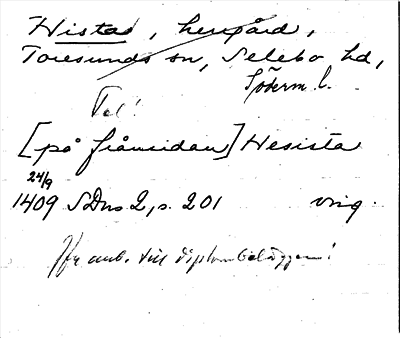 Histad, herrgård,
Toresunds sn, Selebo hd,
Söderm. l.
Tal!
[på framsidan] Hesista
24/9
1409 SDns 2, s. 201 orig.
Jfr anm. till diplombeläggen!